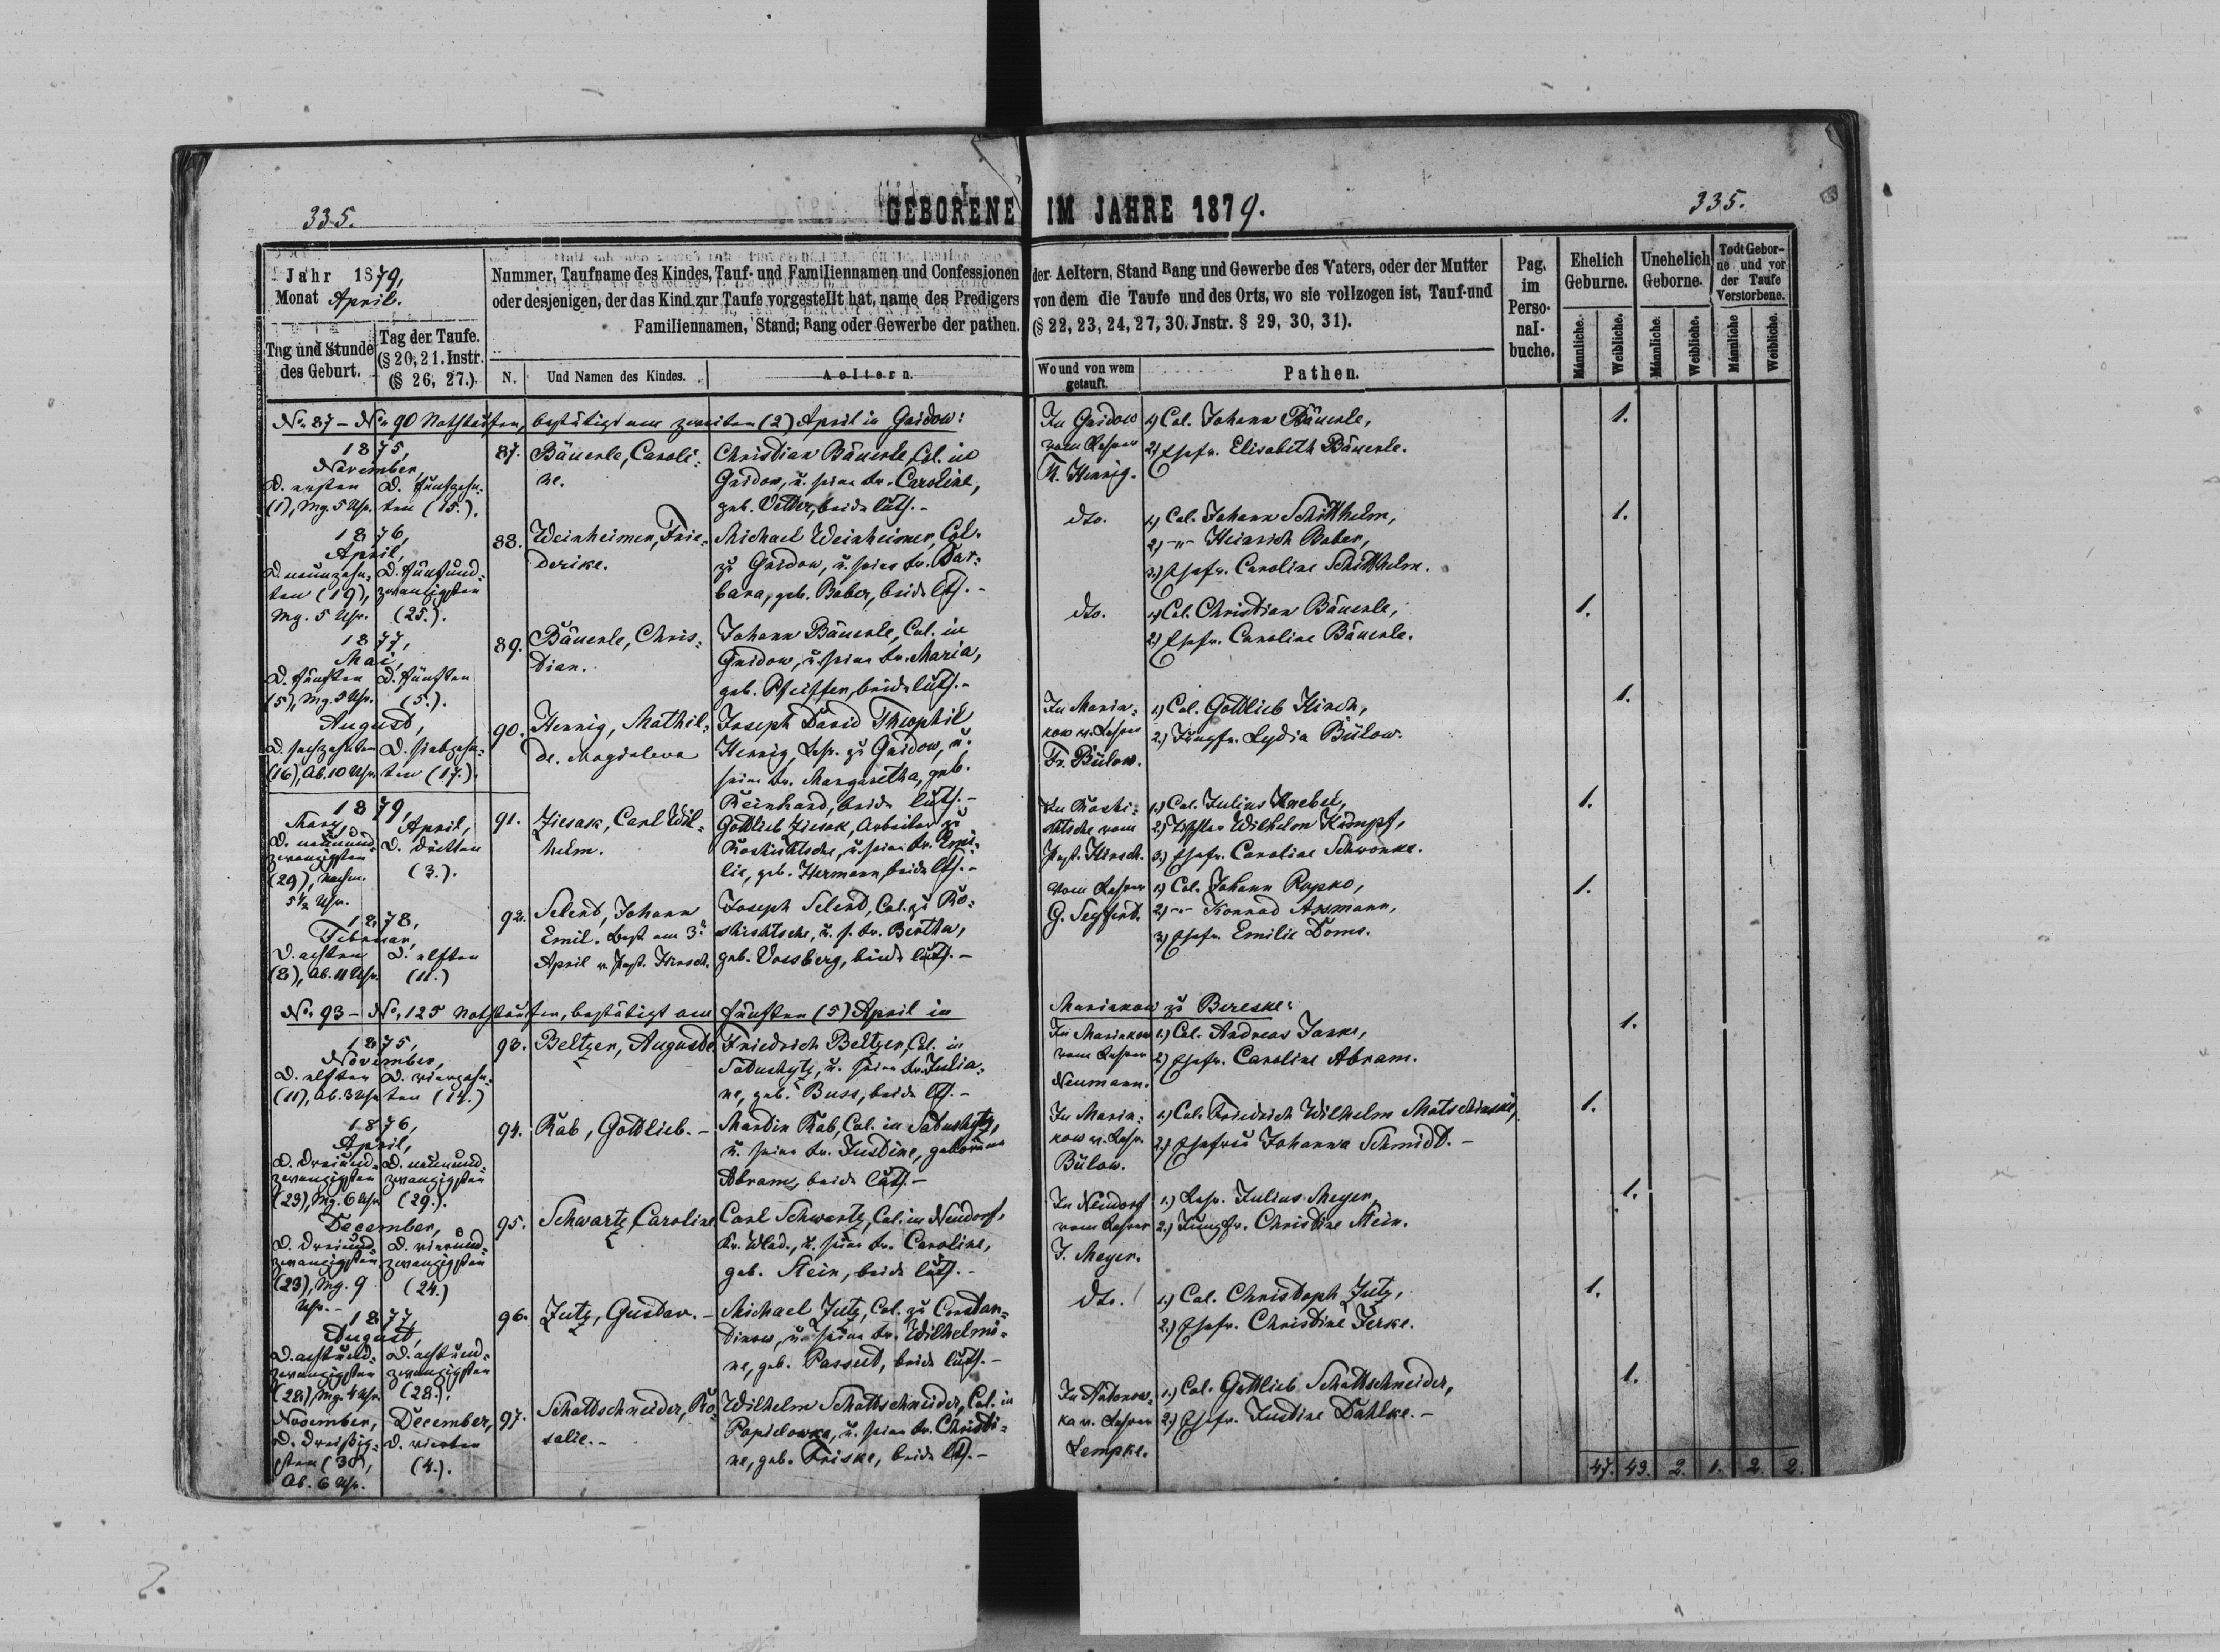 335.
GEBORENE IM JAHRE 1879.
335.
Jahr 1879,
Monat April.
Tag und Stunde
des Geburt.
Tag der Taufe.
(§ 20, 21. Instr.
(§ 26, 27.).
Nummer, Taufname des Kindes, Tauf- und Familiennamen und Confessionen
oder desjenigen, der das Kind zur Taufe vorgestellt hat, name des Predigers
Familiennamen, Stand; Rang oder Gewerbe der pathen.
N.
Und Namen des Kindes.
Aeltern.
der Aeltern, Stand Rang und Gewerbe des Vaters, oder der Mutter
von dem die Taufe und des Orts, wo sie vollzogen ist, Tauf-und
(§ 22, 23, 24, 27, 30. Jnstr. § 29, 30, 31).
Wo und von wem
getauft.
Pathen.
Pag.
im
Perso-
nal-
buche.
Ehelich
Geburne.
Unehelich
Geborne.
Todt Gebor-
ne und vor
der Taufe
Verstorbene.
Männliche.
Weibliche.
Männliche.
Weibliche.
Männliche
Weibliche.
No. 87 – No. 90 Nothtaufen, bestätigt am zweiten (2) April in Gaidow:
1875,
November,
D. ersten
(1), Mg. 5 Uhr.
D. fünfzehn-
ten (15.).
87.
Bäuerle, Caroli-
ne.
Christian Bäuerle, Col. in
Gaidow, u. seine Fr. Caroline,
geb. Vetter, beide luth. –
In Gaidow
vom Lehrer
H. Hennig.
1) Col. Johann Bäuerle,
2) Ehefr. Elisabeth Bäuerle.
1.
1876,
April,
D. neunzehn-
ten (19),
Mg. 5 Uhr.
D. fünfund-
zwanzigsten
(25.).
88.
Weinheimer, Frie-
derike.
Michael Weinheimer, Col.
zu Gaidow, u. seine Fr. Bar-
bara, geb. Baber, beide lth. –
dto.
1) Col. Johann Schitthelm,
2) –"– Heinrich Baber,
3.) Ehefr. Caroline Schitthelm.
1.
1877,
Mai,
D. fünften
(5), Mg. 5 Uhr.
D. fünften
(5.).
89.
Bäuerle, Chris-
tian.
Johann Bäuerle, Col. in
Gaidow, u. seine Fr. Maria,
geb. Pfeiffer, beide luth. –
dto.
1) Col. Christian Bäuerle,
2) Ehefr. Caroline Bäuerle.
1.
August,
D. sechzehnten
(16), Ab. 10 Uhr.
D. siebzehn-
ten (17.).
90.
Hennig, Mathil-
de. Magdalena
Joseph David Theophil
Hennig, Lehr. zu Gaidow, u.
seine Fr. Margaretha, geb.
Reinhard, beide luth. –
In Maria-
kow v. Lehrer
Fr. Bülow.
1) Col. Gottlieb Hirch,
2.) Jungfr. Lydia Bülow.
1.
1879,
März,
D. neunund-
zwanzigsten
(29), Nachm.
5½ Uhr.
April,
D. dritten
(3.).
91.
Ziesak, Carl Wil-
helm.
Gottlieb Ziesak, Arbeiter zu
u. seine Fr. Emi-
lie, geb. Hermann, beide lth. –
vom
Past. Hirsch.
1.) Col. Julius
2.) Tischler Wilhelm Kämpf,
3.) Ehefr. Caroline Schwonke.
1.
1878,
Februar,
D. achten
(8), Ab. 11 Uhr.
D. elften
(11.)
92.
Selent, Johann
Emil. Best. am 3.
April v. Past. Hirsch.
Joseph Selent, Col. zu
u. s. Fr. Bertha,
geb. Vossberg, beide luth. –
vom Lehrer
G. Seyfert.
1) Col. Johann Rupko,
2) –"– Konrad Assmann,
3) Ehefr. Emilie Doms.
1.
No. 93 – No. 125 Nothtaufen, bestätigt am fünften (5) April in
Mariakow zu Bereske:
1875,
November,
D. elften
(11), Ab. 3 Uhr
D. vierzehn-
ten (14.)
93.
Beltzer, Auguste
Friedrich Beltzer, Col. in
u. seine Fr. Julia-
ne, geb. Buss, beide lth. –
In Mariakow
vom Lehrer
Neumann.
1.) Col. Andreas Jaske,
2) Ehefr. Caroline Abram.
1.
1876,
April,
D. dreiund-
zwanzigsten
(23), Mg. 6 Uhr
D. neunund-
zwanzigsten
(29.).
94.
Rab, Gottlieb. –
Martin Rab, Col. in
u. seine Fr. Justine, geborene
Abram, beide luth. –
In Maria-
kow v. Lehr.
Bülow.
1.) Col. Friedrich Wilhelm Matschinske,
2.) Ehefrau Johanna Schmidt. –
1.
December,
D. dreiund-
zwanzigsten
(23), Mg. 9
Uhr. –
D. vierund-
zwanzigsten
(24.)
95.
Schwartz, Caroline
Carl Schwartz, Col. in Neudorf,
Kr. Wlad., u. seine Fr. Caroline,
geb. Stein, beide luth. –
In Neudorf
vom Lehrer
J. Meyer.
1.) Lehr. Julius Meyer,
2.) Jungfr. Christine Stein.
1.
1877,
August,
D. achtund-
zwanzigsten
(28), Mg. 4 Uhr.
D. achtund-
zwanzigsten
(28.).
96.
Jutz, Gustav. –
Michael Jutz, Col. zu Constan-
tinow, u. seine Fr. Wilhelmi-
ne, geb. Passut, beide luth. –
dto.
1.) Col. Christoph Jutz,
2.) Ehefr. Christine Jerke.
1.
November,
D. dreißig-
sten (30),
Ab. 6 Uhr.
December,
D. vierten
(4.).
97.
Schattschneider, Ro-
salie. –
Wilhelm Schattschneider, Col. in
Popielowka, u. seine Fr. Christi-
ne, geb. Friske, beide lth. –
In Antonow-
ka v. Lehrer
Lempke.
1.) Col. Gottlieb Schattschneider,
2.) Ehefr. Justine Dahlke. –
1.
47. 43. 2. 1. 2. 2.